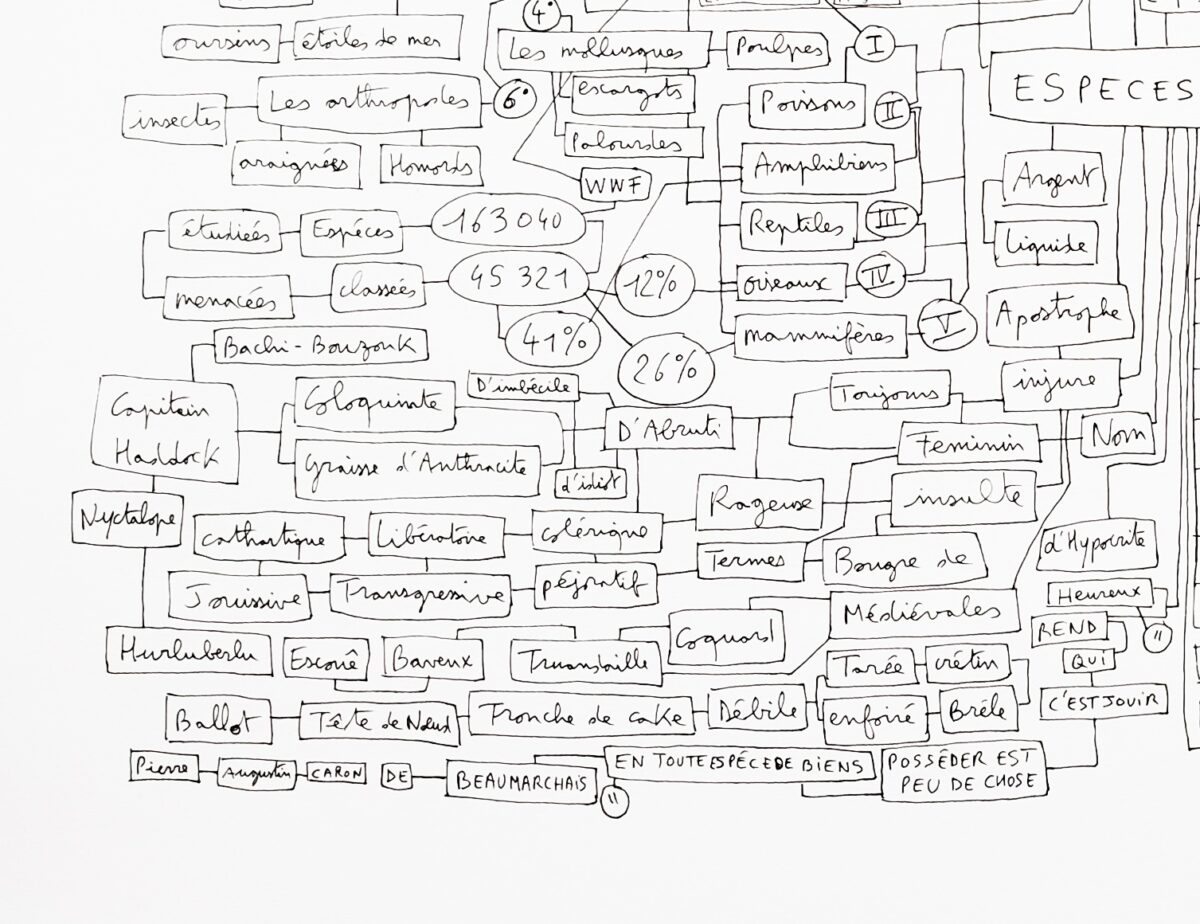 4°
oursins
étoiles de mer
Les mollusques
Poulpes
I
ESPECES
insectes
Les arthropodes
6°
escargots
Poissons
II
Palourdes
araignées
Homards
WWF
Amphibiens
Argent
étudiées
Espéces
163 040
Reptiles
III
Liquide
menacées
classées
45 321
12%
oiseaux
IV
Apostrophe
Bachi-Bouzouk
41%
mammifères
V
26%
injure
Capitain
Haddock
Coloquinte
D'imbécile
Toujours
D'Abruti
Feminin
Nom
Graisse d'Anthracite
d'idiot
Rageuse
insulte
Nyctalope
cathartique
Libératoire
colérique
Termes
Bougre de
d'Hypocrite
Jouissive
Transgressive
péjoratif
Heureux
Médiévales
REND
"
Hurluberlu
Escouê
Baveux
Truandaille
Coquard
Tarée
crétin
QUI
C'EST JOUIR
Ballot
Tête de Nœux
Tronche de cake
Débile
enfoiré
Brêle
Pierre
Augustin
CARON
DE
BEAUMARCHAIS
"
EN TOUTE ESPÉCE DE BIENS
POSSÉDER EST
PEU DE CHOSE